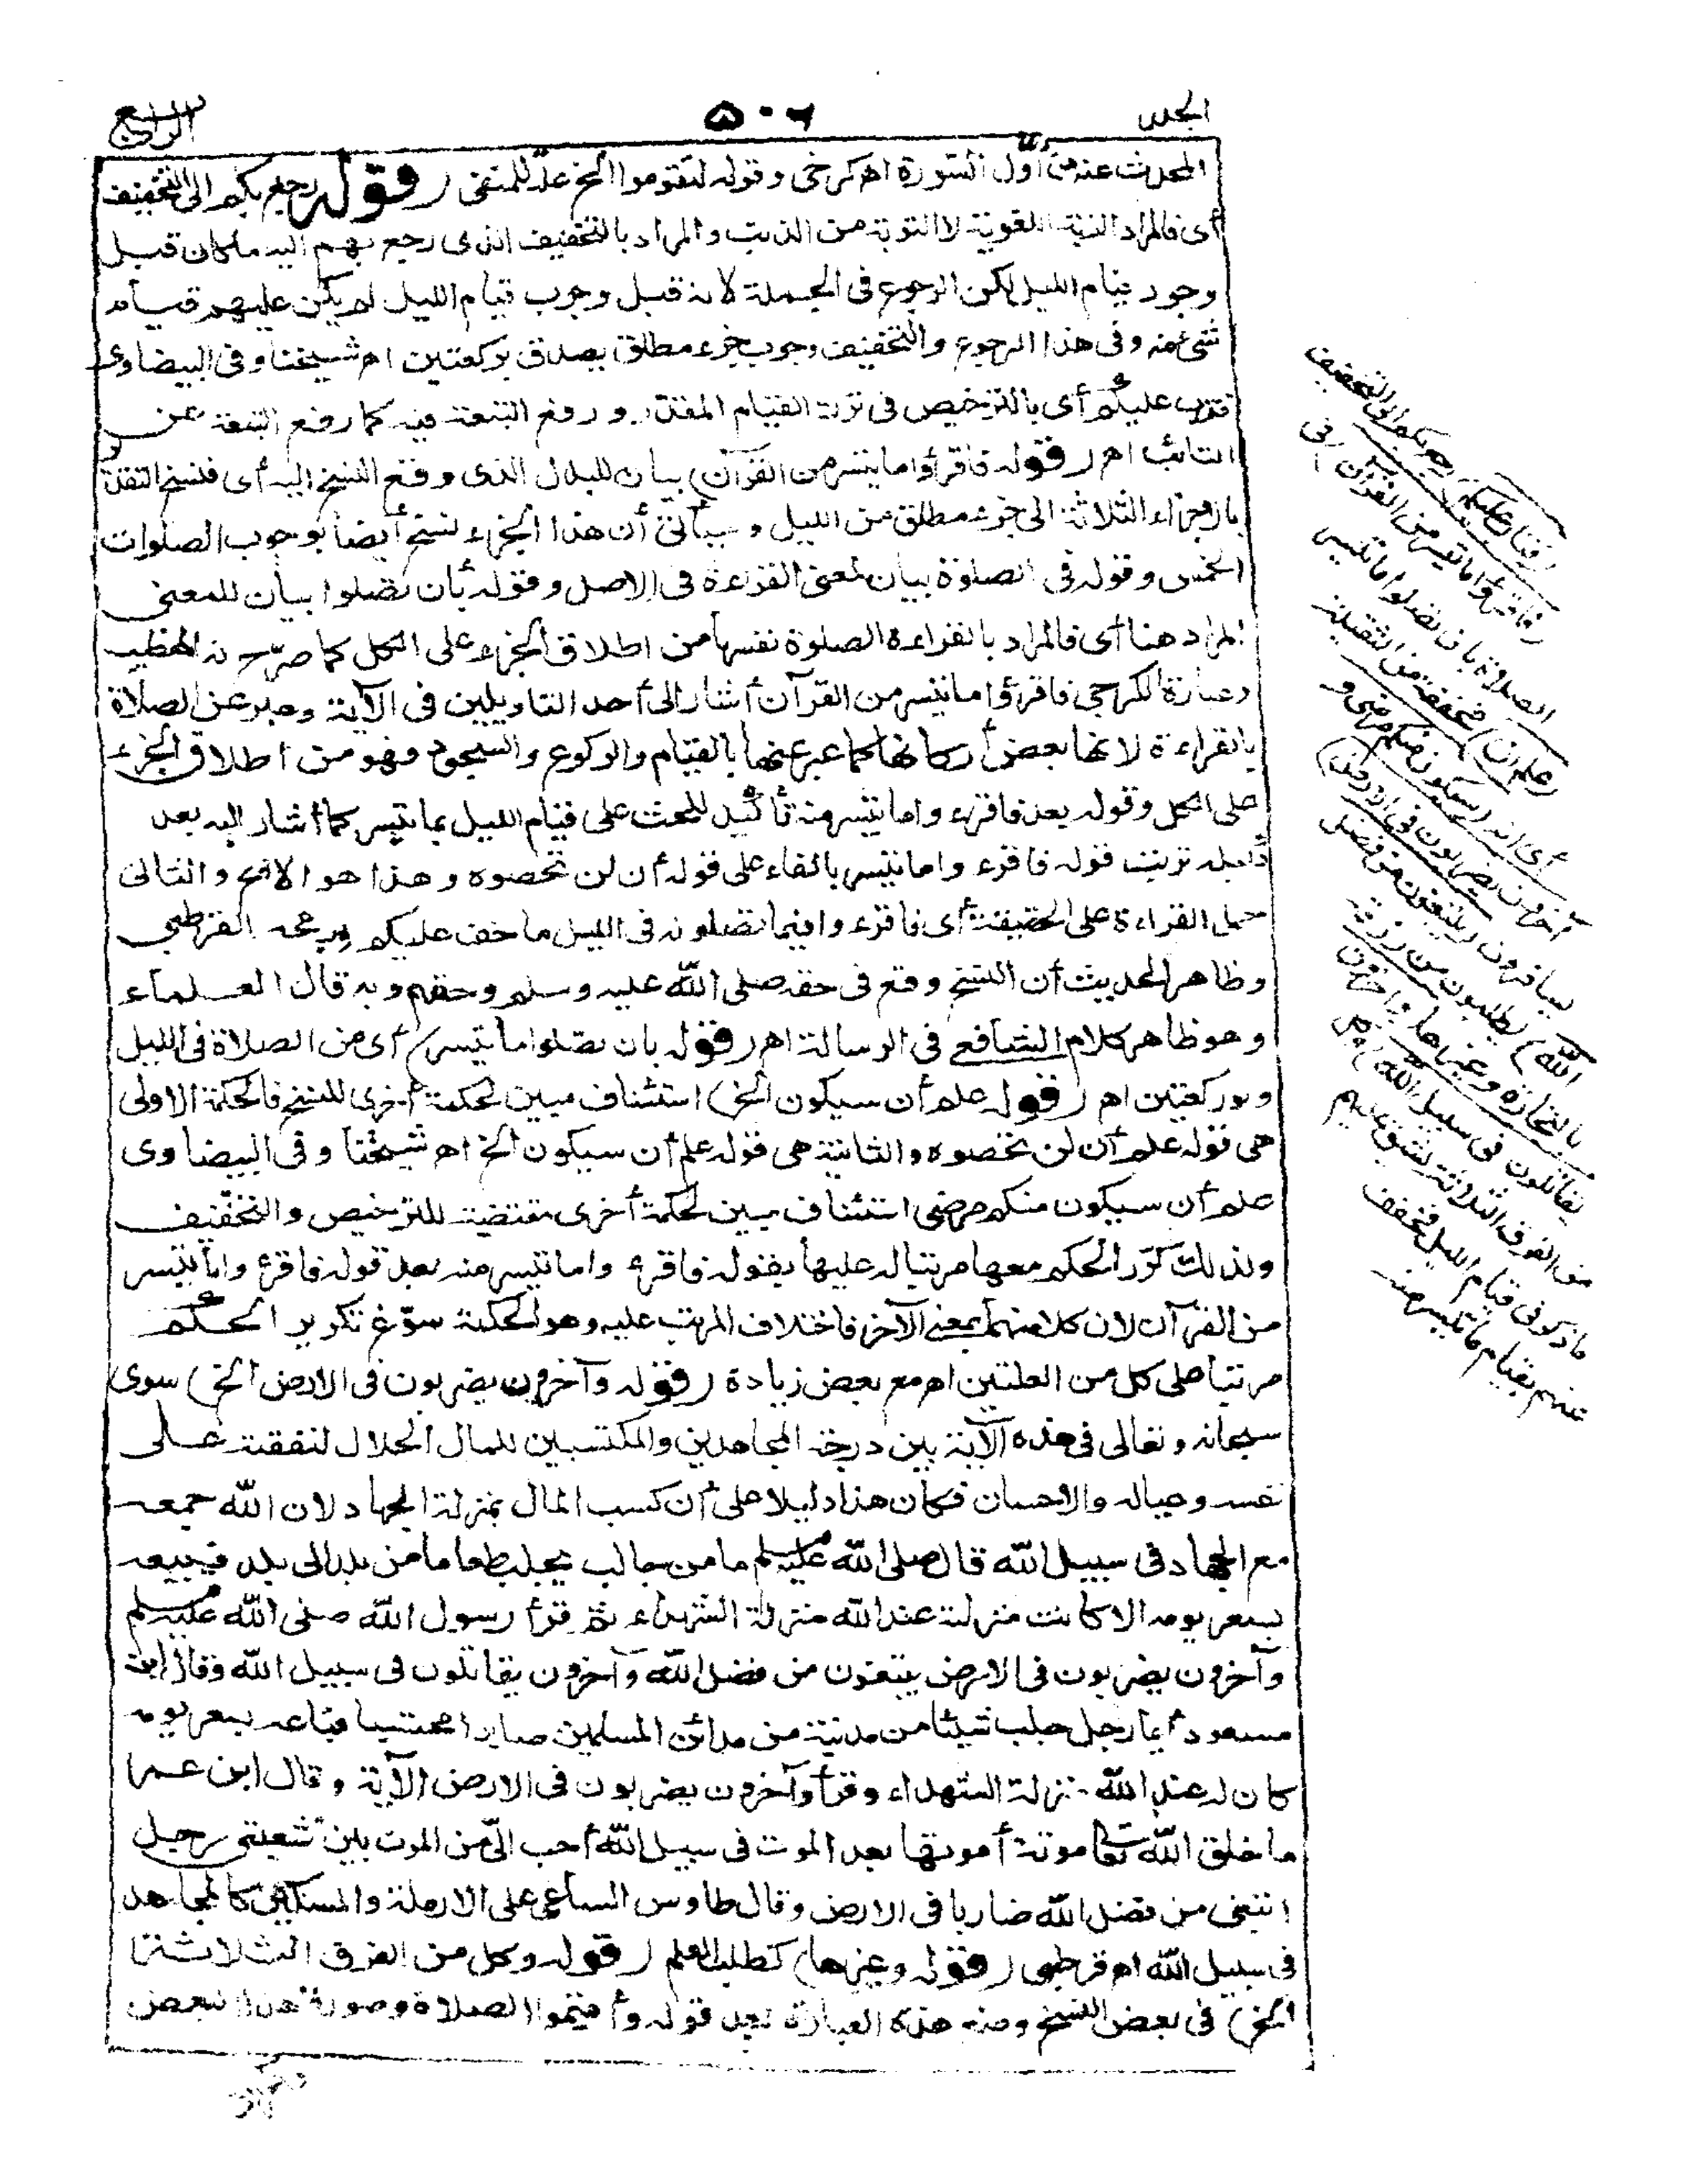 الجلد
٥٠٦
الرابع
المحدث عنه من أول السورة اهـ كرخى وقوله لتقوموا الخ علة للمنفى (قوله رجع بكم الى التخفيف
أى فالمراد التوبة اللغوية لا التوبة من الذنب والمراد بالتخفيف الذى رجع بهم اليه ما كان قبل
وجود قيام الليل لكن الرجوع فى الجملة لانه قبل وجوب قيام الليل لم يكن عليهم قيام
شئ منه وفى هذا الرجوع والتخفيف وجوب جزء مطلق يصدق بركعتين اهـ شيخنا وفى البيضاوى
فتاب عليكم أى بالترخيص فى ترك القيام المقدر ورفع التبعة فيه كما رفع التبعة عن
التائب اهـ (قوله فاقرؤا ما تيسر من القرآن) بيان للبدل الذى وقع النسخ اليه أى فنسخ التقدير
بالاجزاء الثلاثة الى جزء مطلق من الليل وسيأتى أن هذا الجزء نسخ أيضا بوجوب الصلوات
الخمس وقوله فى الصلوة بيان لمعنى القراءة فى الاصل وقوله بأن تصلوا بيان للمعنى
المراد هنا أى فالمراد بالقراءة الصلوة نفسها من اطلاق الجزء على الكل كما صرح به الخطيب
وعبارة الكرخى فاقرؤا ما تيسر من القرآن أشار الى أحد التاويلين فى الآية وعبر عن الصلاة
بالقراءة لانها بعض أركانها كما عبر عنها بالقيام والركوع والسجود فهو من اطلاق الجزء
على الكل وقوله بعد فاقرءوا ما تيسر منه تأكيد للحث على قيام الليل بما تيسر كما أشار اليه بعد
قبله ترتيب قوله فاقرءوا ما تيسر بالفاء على قوله أن لن تحصوه وهذا هو الاصح والثانى
حمل القراءة على الحقيقة أى فاقرءوا فيما تصلونه فى الليل ما خف عليكم ورجحه القرطبى
وظاهر الحديث أن النسخ وقع فى حقه صلى الله عليه وسلم وحقهم وبه قال العلماء
وهو ظاهر كلام الشافعى فى الرسالة اهـ (قوله بان تصلوا ما تيسر) أى من الصلاة فى الليل
ولو ركعتين اهـ (قوله علم أن سيكون الخ) استئناف مبين لحكمة أخرى للنسخ فالحكمة الاولى
هى قوله علم أن لن تحصوه والثانية هى قوله علم أن سيكون الخ اهـ شيخنا وفى البيضاوى
علم أن سيكون منكم مرضى استئناف يبين لحكمة أخرى مقتضية للترخيص والتخفيف
ولذلك كرر الحكم معها مرتبا له عليها بقوله فاقرءوا ما تيسر منه بعد قوله فاقرءوا ما تيسر
من القرآن لان كلا منهما بمعنى الآخر فاختلاف المرتب عليه وهو الحكمة سوّغ تكرير الحكم
مرتبا على كل من العلتين اهـ مع بعض زيادة (قوله وآخرون يضربون فى الارض الخ) سوى
سبحانه وتعالى فى هذه الآية بين درجة المجاهدين والمكتسبين للمال الحلال لنفقته على
نفسه وعياله والاحسان فكان هذا دليلا على أن كسب المال بمنزلة الجهاد لان الله جمعه
مع الجهاد فى سبيل الله قال صلى الله عليه وسلم ما من جالب يجلب طعاما من بلد الى بلد فيبيعه
بسعر يومه الا كانت منزلته عند الله منزلة الشهداء ثم قرأ رسول الله صلى الله عليه وسلم
وآخرون يضربون فى الارض يبتغون من فضل الله وآخرون يقاتلون فى سبيل الله وقال ابن
مسعود أيما رجل جلب شيئا من مدينة من مدائن المسلمين صابرا محتسبا فباعه بسعر يومه
كان له عند الله منزلة الشهداء وقرأ وآخرون يضربون فى الارض الآية وقال ابن عمر
ما خلق الله تعا موتة أموتها بعد الموت فى سبيل الله أحب الىّ من الموت بين شعبتى رحل
ابتغى من فضل الله ضاربا فى الارض وقال طاوس الساعى على الارملة والمسكين كالمجاهد
فى سبيل الله اهـ قرطبى (قوله وغيرها) كطلب العلم (قوله وكل من الفرق الثلاثة
الخ) فى بعض النسخ وضع هذه العبارة بعد قوله وأقيموا الصلاة وصورة هذا البعض
(فتاب عليكم) رجع بكم الى التخفيف
(فاقرؤا ما تيسر من القرآن) فى
الصلاة بان تصلوا ما تيسر
(علم أن) مخففة من الثقيلة
أى انه (سيكون منكم مرضى و
آخرون يضربون فى الارض)
يسافرون (يبتغون من فضل
الله) يطلبون من رزقه
بالتجارة وغيرها (وآخرون
يقاتلون فى سبيل الله) وكل
من الفرق الثلاثة يشق عليهم
ما ذكر فى قيام الليل فخفف
عنهم بقيام ما تيسر منه